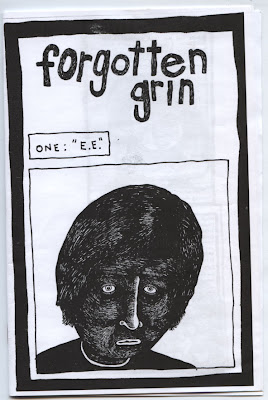 forgotten
grin
ONE: "E.E."